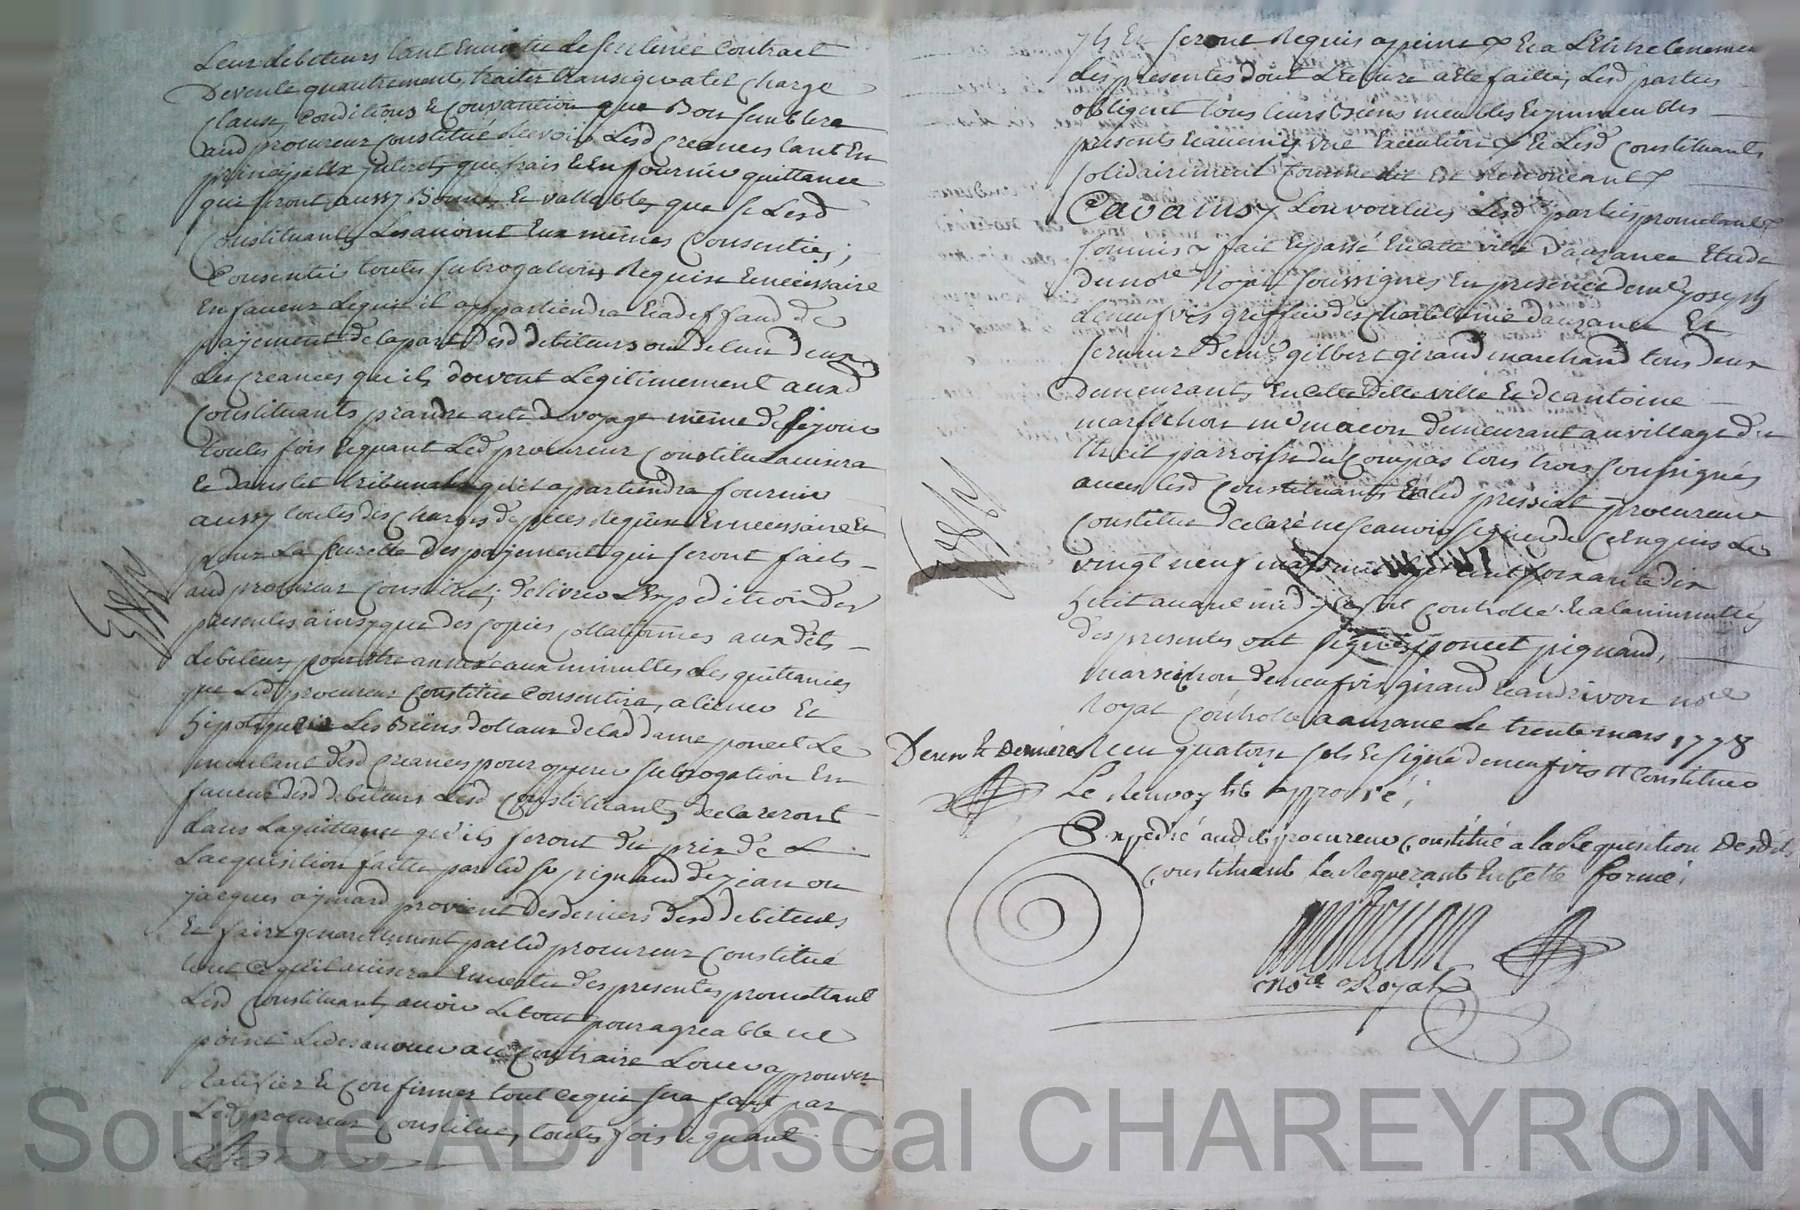 Leur debiteurs tant en vertu de sentence contract
de vente qu'autrement, traiter transiger a tel charge
clause, conditions et convantion que bon semblera
aud procureur constitué recevoir lesd creances tant en
principalle jnteret, que frais et en fournir quittance
qui seront aussy bonne et vallable, que si lesd
constituants les avoint eux mêmes consenties;
Consentir toutes subrogations requise et necessaire
en faveur de qui il appartiendra et a deffaud de
payement de la part desd debiteurs ou de l'un d'eux
des creances qu'ils doivent legitimement auxd
constituants prandre acte de voyage même de sejour
toutes fois et quant led procureur constitué avisera
et dans tel tribunal qu'il apartiendra fournir
aussy toutes decharges de pieces requise et necessaire et
pour la seurette des payements qui seront faits
aud procureur constitué; delivrer l'expedition des
presentes ainsy que des copies collationnés aux dits
debiteurs pour être annexé aux minuttes des quittances
que led procureur constitué consentira, aliener et
hipotequer les biens dotaux de lad dame poncet le
montant desd creances pour operer subrogation en
faveur desd debiteurs lesd constituants declareront
dans la quittance qu'ils feront du prix de
l'acquisition faitte par led sr pignaud de jean ou
jacques aymard provient des deniers desd debiteurs
et faire generallement par led procureur constitué
tout ce qu'il avisera en vertu des presentes promettant
lesd constituants avoir le tout pour agreable ne
point le desavouer au contraire louer approuver
ratifier et confirmer tout ce qui sera fait par
led procureur constitué, toutes fois et quant
ils en seront requis a peine et a l'entretenement
des presentes dont lecture a été faitte, lesd parties
obligent tous leurs biens meubles et jmmeubles
presents et avenir, et lesd constituants
solidairement comme dit est renonceant
Car ainsy l'on voulus lesd parties promettant
soumis fait et passé en cette ville d'auzance etude
du nore royal soussignés en presence de me joseph
deneufvis greffier de chatelenie d'auzance et
fermier de mr gilbert giraud marchand tous deux
demeurants en cette ditte ville et de antoine
marsichon me macon demeurant au village de
parroisse du compas tous trois soussignés
avec lesd constituants et led pressiat procureur
constitué declaré ne scavoir signer de ce enquis le
vingt neuf mars mil sept cent soixante dix
huit avant midy controllé et a la minutte
des presentes ont signés poncet pignaud,
marsichon deneufvis, giraud et andrivon nore
royal controllé a auzance le trente mars 1778
recu quatorze sols et signé deneufvis constitué
Le renvoy est approuvé;
Expedié audit procureur constitué a la requisition desdits
constituants le requerant en cette forme;
andrivon
Nore Royal
Source AD Pascal CHAREYRON